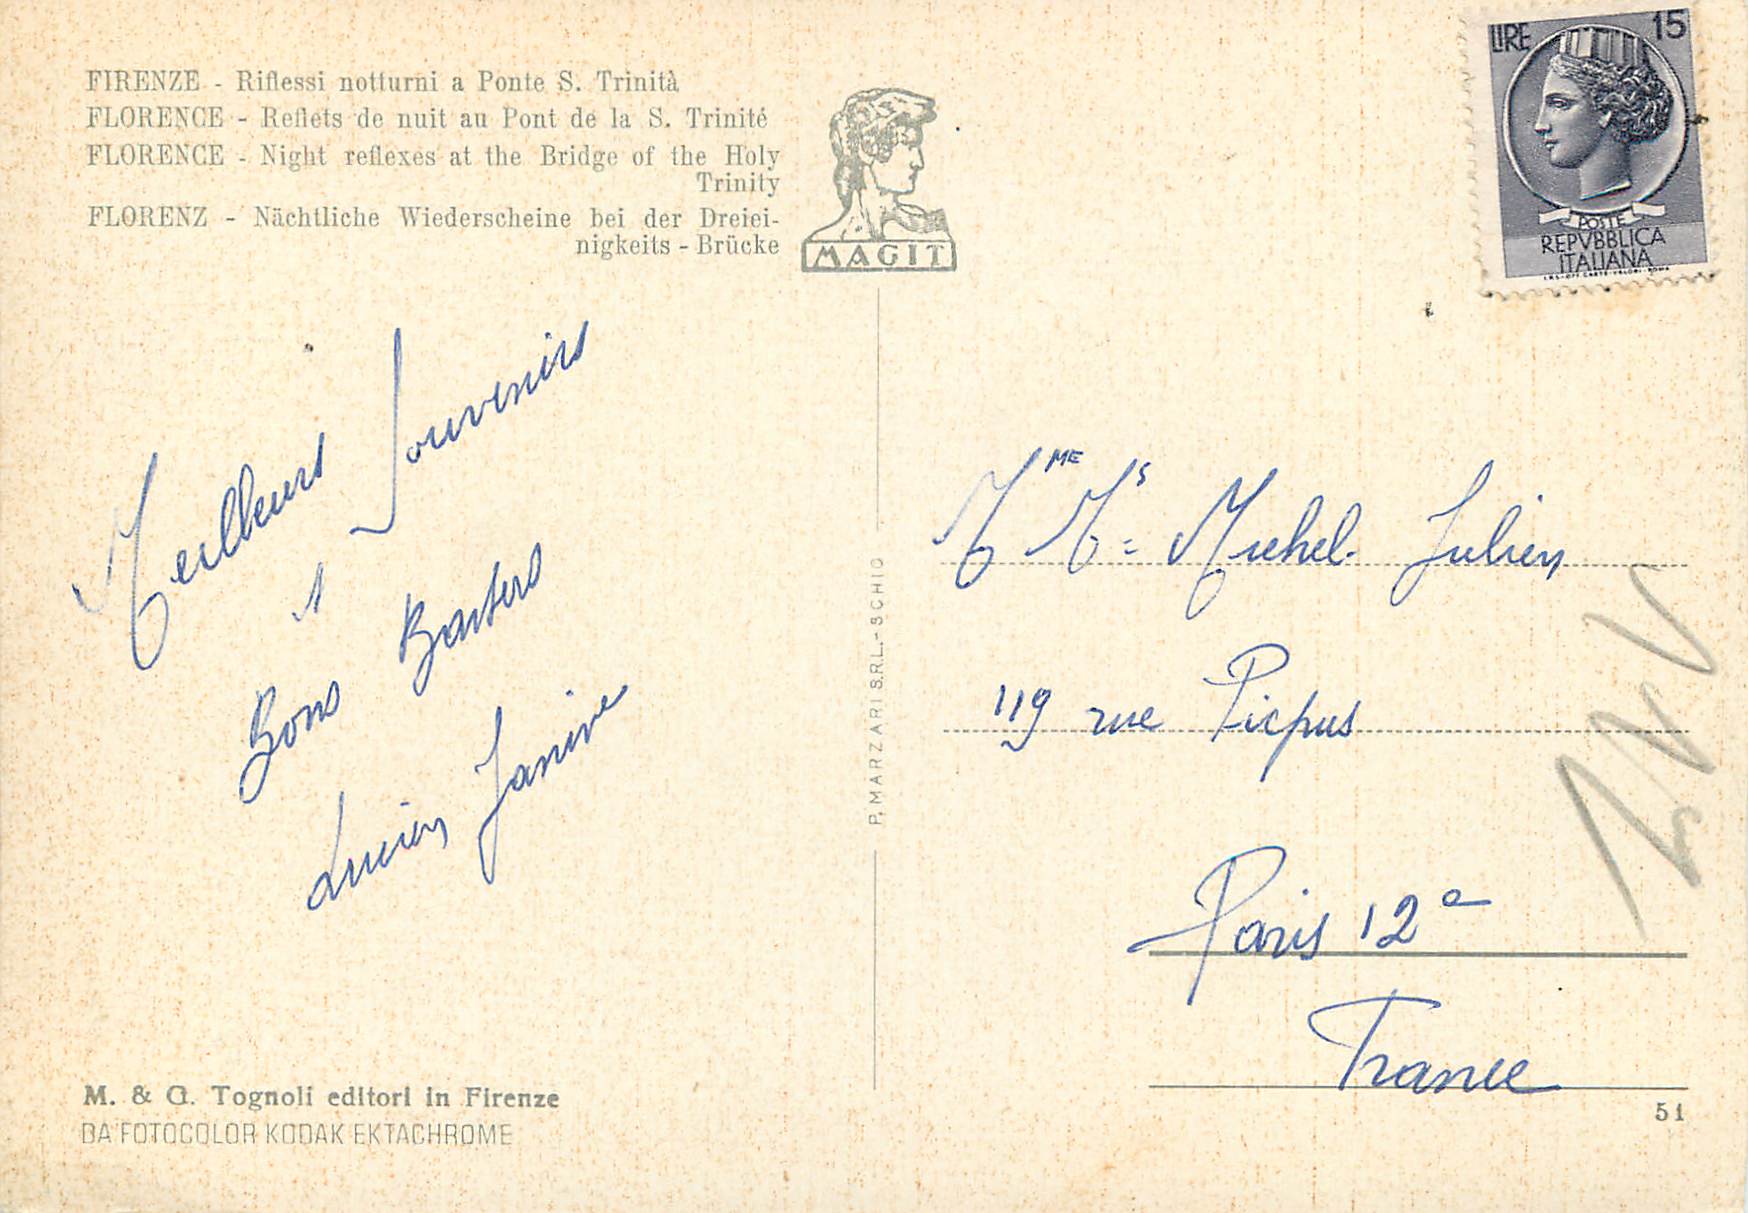 FIRENZE - Riflessi notturni a Ponte S. Trinità
FLORENCE - Reflets de nuit au Pont de la S. Trinité
FLORENCE - Night reflexes at the Bridge of the Holy
Trinity
FLORENZ - Nächtliche Wiederscheine bei der Dreiei-
nigkeits - Brücke
MAGIT
LIRE 15
POSTE
REPVBBLICA
ITALIANA
I.P.S.-OFF. CARTE-VALORI-ROMA
Meilleurs Souvenirs
Bons Baisers
Lucien Janine
P. MARZARI S.R.L. - SCHIO
M ME M s = Michel Julien
119 rue Picpus
Paris 12e
France
M. & G. Tognoli editori in Firenze
DA FOTOCOLOR KODAK EKTACHROME
51